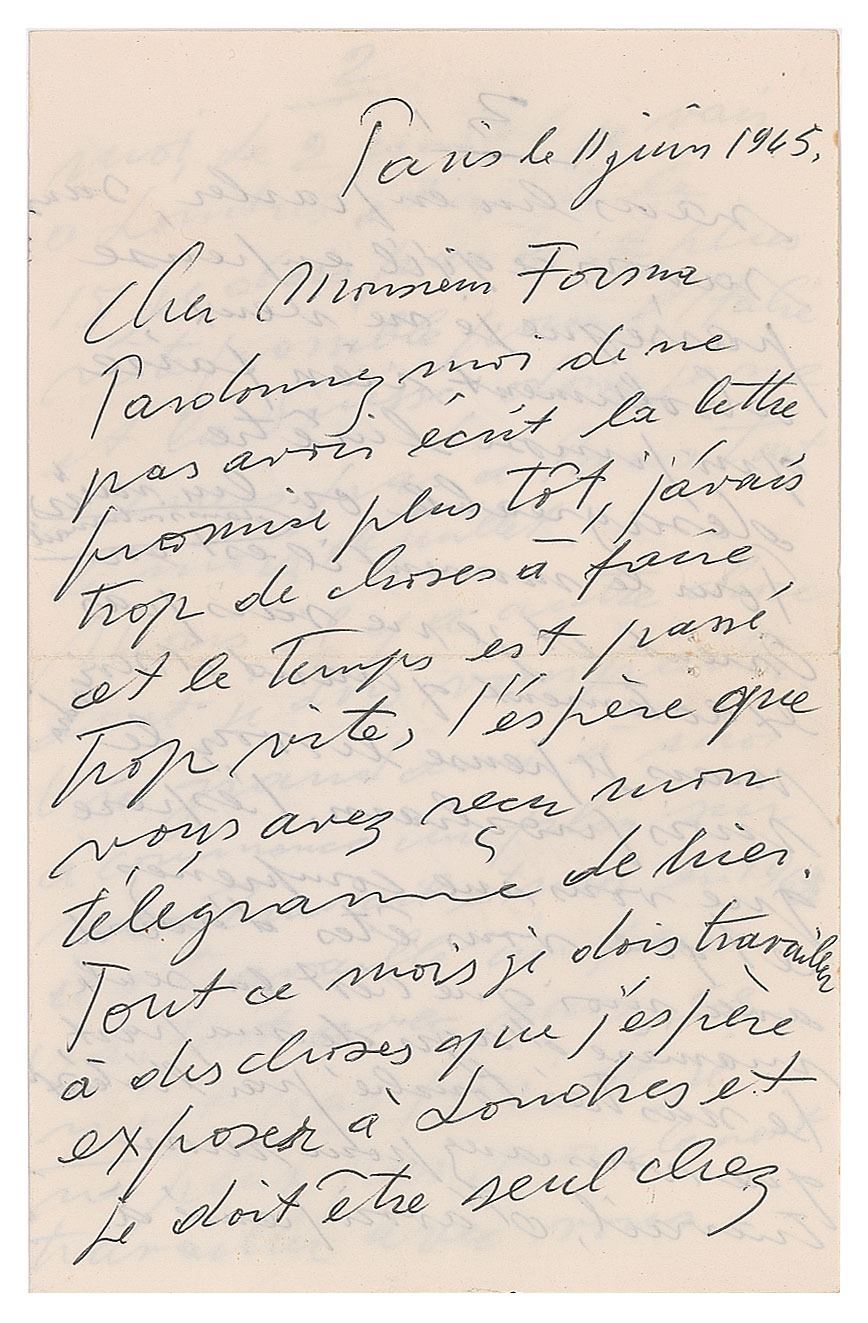 Paris le 11 juin 1965.
Cher Monsieur
Pardonnez moi de ne
pas avoir écrit la lettre
promise plus tôt, j'avais
trop de choses à faire
et le temps est passé
trop vite, j'éspère que
vous avez reçu mon
télégramme de hier.
Tout ce mois je dois travailler
à des choses que j'éspère
exposer à Londres et
je doit être seul chez